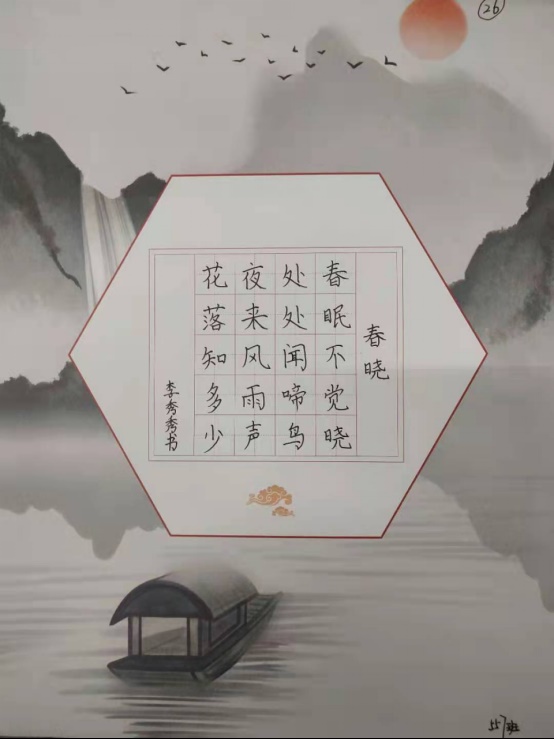 26
春晓
春眠不觉晓
处处闻啼鸟
夜来风雨声
花落知多少
李秀秀书
557班